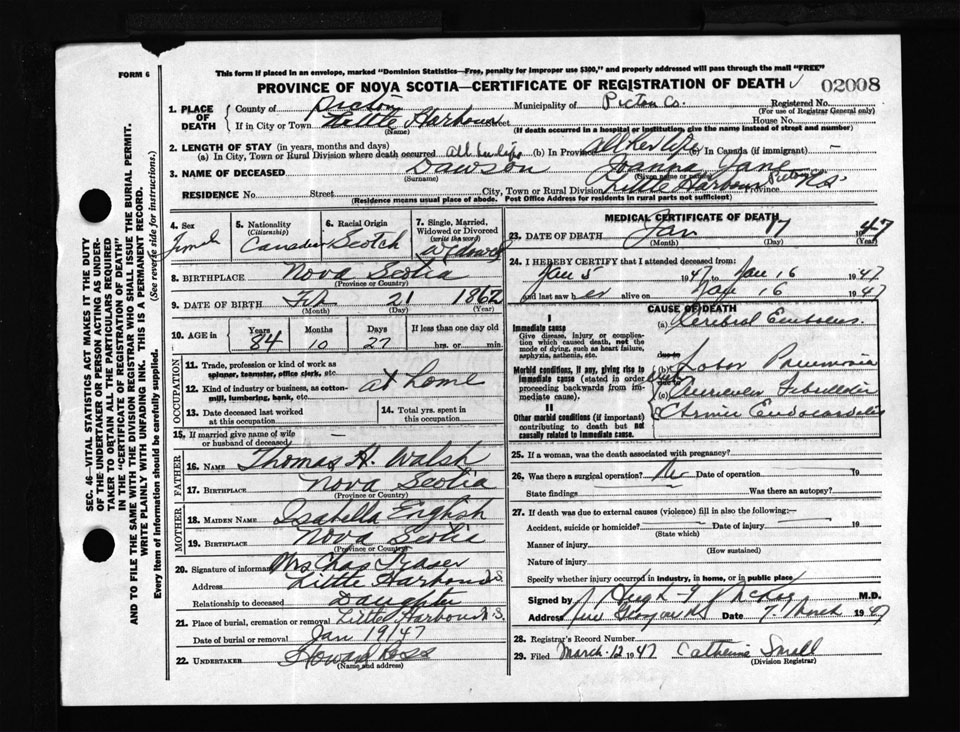 FORM 6
This form if placed in an envelope, marked "Dominion Statistics—Free, penalty for improper use $300," and properly addressed will pass through the mail "FREE"
PROVINCE OF NOVA SCOTIA—CERTIFICATE OF REGISTRATION OF DEATH 02008
1. PLACE OF DEATH County of Pictou Municipality of Pictou Co. Registered No.
(For use of Registrar General only)
If in City or Town Little Harbour Street House No.
(Name) (If death occurred in a hospital or institution, give the name instead of street and number)
2. LENGTH OF STAY (in years, months and days)
(a) In City, Town or Rural Division where death occurred All her life (b) In Province All her life (c) In Canada (if immigrant) —
3. NAME OF DECEASED Dawson Joanna Jane
(Surname) (Given name or names)
RESIDENCE No. Street City, Town or Rural Division Little Harbour Province Pictou N.S.
(Residence means usual place of abode. Post Office Address for residents in rural parts not sufficient)
4. Sex Female
5. Nationality (Citizenship) Canadian
6. Racial Origin Scotch
7. Single, Married, Widowed or Divorced (write the word) Widowed
8. BIRTHPLACE Nova Scotia
(Province or Country)
9. DATE OF BIRTH Feb 21 1862
(Month) (Day) (Year)
10. AGE in Years 84 Months 10 Days 27 If less than one day old hrs. or min.
OCCUPATION
11. Trade, profession or kind of work as spinner, teamster, office clerk, etc.
12. Kind of industry or business, as cotton-mill, lumbering, bank, etc. at home
13. Date deceased last worked at this occupation
14. Total yrs. spent in this occupation
15. If married give name of wife or husband of deceased —
FATHER
16. NAME Thomas H. Walsh
17. BIRTHPLACE Nova Scotia
(Province or Country)
MOTHER
18. MAIDEN NAME Isabella English
19. BIRTHPLACE Nova Scotia
(Province or Country)
20. Signature of informant Mrs Chas Fraser
Address Little Harbour N.S.
Relationship to deceased Daughter
21. Place of burial, cremation or removal Little Harbour N.S.
Date of burial or removal Jan 19/47
22. UNDERTAKER Howard Ross
(Name and address)
MEDICAL CERTIFICATE OF DEATH
23. DATE OF DEATH Jan 17 1947
(Month) (Day) (Year)
24. I HEREBY CERTIFY that I attended deceased from:
Jan 5 1947 to Jan 16 1947
and last saw her alive on Jan 16 1947
CAUSE OF DEATH
I
Immediate cause
Give disease, injury or complication which caused death, not the mode of dying, such as heart failure, asphyxia, asthenia, etc.
(a) Cerebral Embolus
due to
Morbid conditions, if any, giving rise to immediate cause (stated in order proceeding backwards from immediate cause).
(b) Lobar Pneumonia
due to
(c) Auricular Fibrillation
II
Other morbid conditions (if important) contributing to death but not causally related to immediate cause.
Endocarditis
25. If a woman, was the death associated with pregnancy?
26. Was there a surgical operation? No Date of operation 19
State findings Was there an autopsy?
27. If death was due to external causes (violence) fill in also the following:—
Accident, suicide or homicide? Date of injury 19
(State which)
Manner of injury
(How sustained)
Nature of injury
Specify whether injury occurred in industry, in home, or in public place
Signed by Hugh McKay M.D.
Address New Glasgow NS Date 7 March 1947
28. Registrar's Record Number
29. Filed March 12 1947 Catherine Small
(Division Registrar)
SEC. 46—VITAL STATISTICS ACT MAKES IT THE DUTY
OF THE UNDERTAKER OR PERSON ACTING AS UNDERTAKER TO OBTAIN ALL THE PARTICULARS REQUIRED
IN THE "CERTIFICATE OF REGISTRATION OF DEATH"
AND TO FILE THE SAME WITH THE DIVISION REGISTRAR WHO SHALL ISSUE THE BURIAL PERMIT.
WRITE PLAINLY WITH UNFADING INK. THIS IS A PERMANENT RECORD.
Every item of information should be carefully supplied. (See reverse side for instructions.)